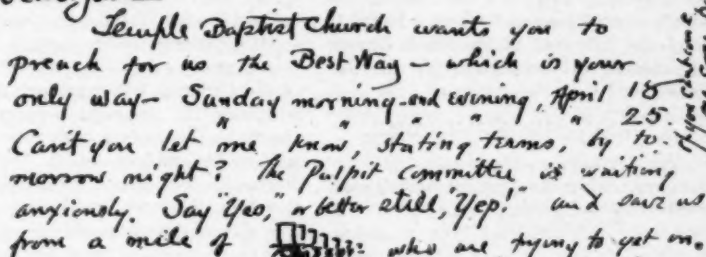 Temple Baptist Church wants you to
preach for us the Best Way – which is your
only way – Sunday morning and evening, April 18
" " " " " 25.
Can't you let me know, stating terms, by to-
morrow night? The Pulpit Committee is waiting
anxiously. Say "Yes," or better still, "Yep!" and save us
from a mile of who are trying to get in.
if you can come